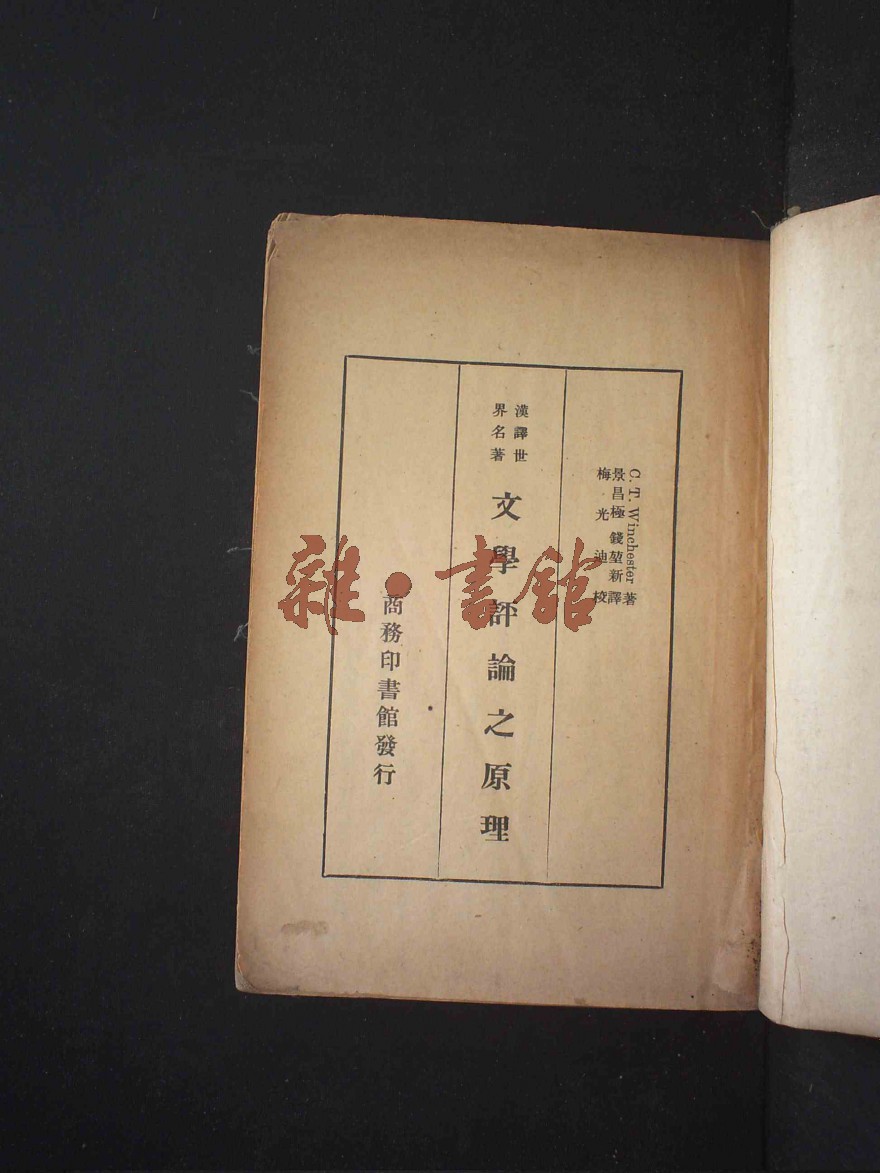 C. T. Winchester 著
景昌極 錢堃新 譯
梅光迪 校
漢譯世
界名著
文學評論之原理
商務印書館發行
雜·書館